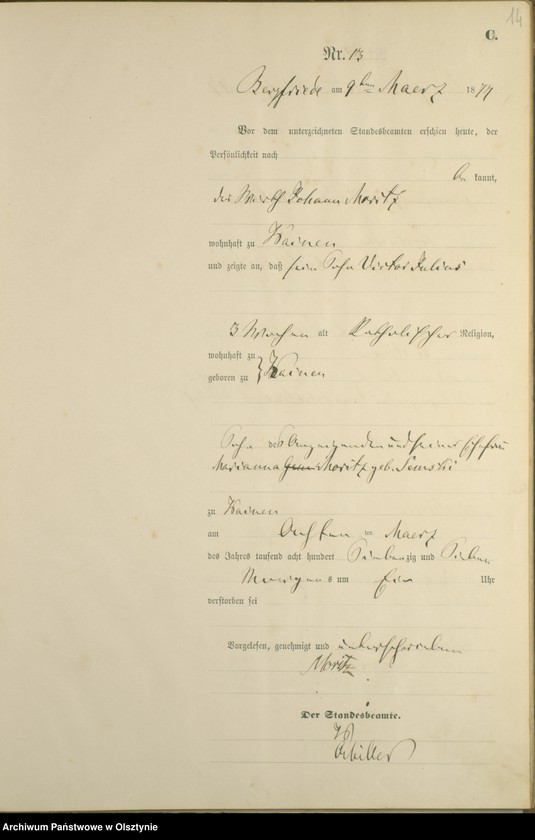 14
C.
Nr. 13
Bergfriede am 9ten Maerz 1877
Vor dem unterzeichneten Standesbeamten erschien heute, der
Persönlichkeit nach
be kannt,
der Wirth Johann Moritz
wohnhaft zu Kainen
und zeigte an, daß sein Sohn Victor Julius
3 Wochen alt Katholischer Religion,
wohnhaft zu
geboren zu } Kainen
Sohn des Anzeigenden und seiner Ehefrau
Marianna Moritz geb.
zu Kainen
am Achten ten Maerz
des Jahres tausend acht hundert Siebenzig und Sieben
Morgens um Ein Uhr
verstorben sei
Vorgelesen, genehmigt und unterschrieben
Moritz
Der Standesbeamte.
Schiller
Archiwum Państwowe w Olsztynie